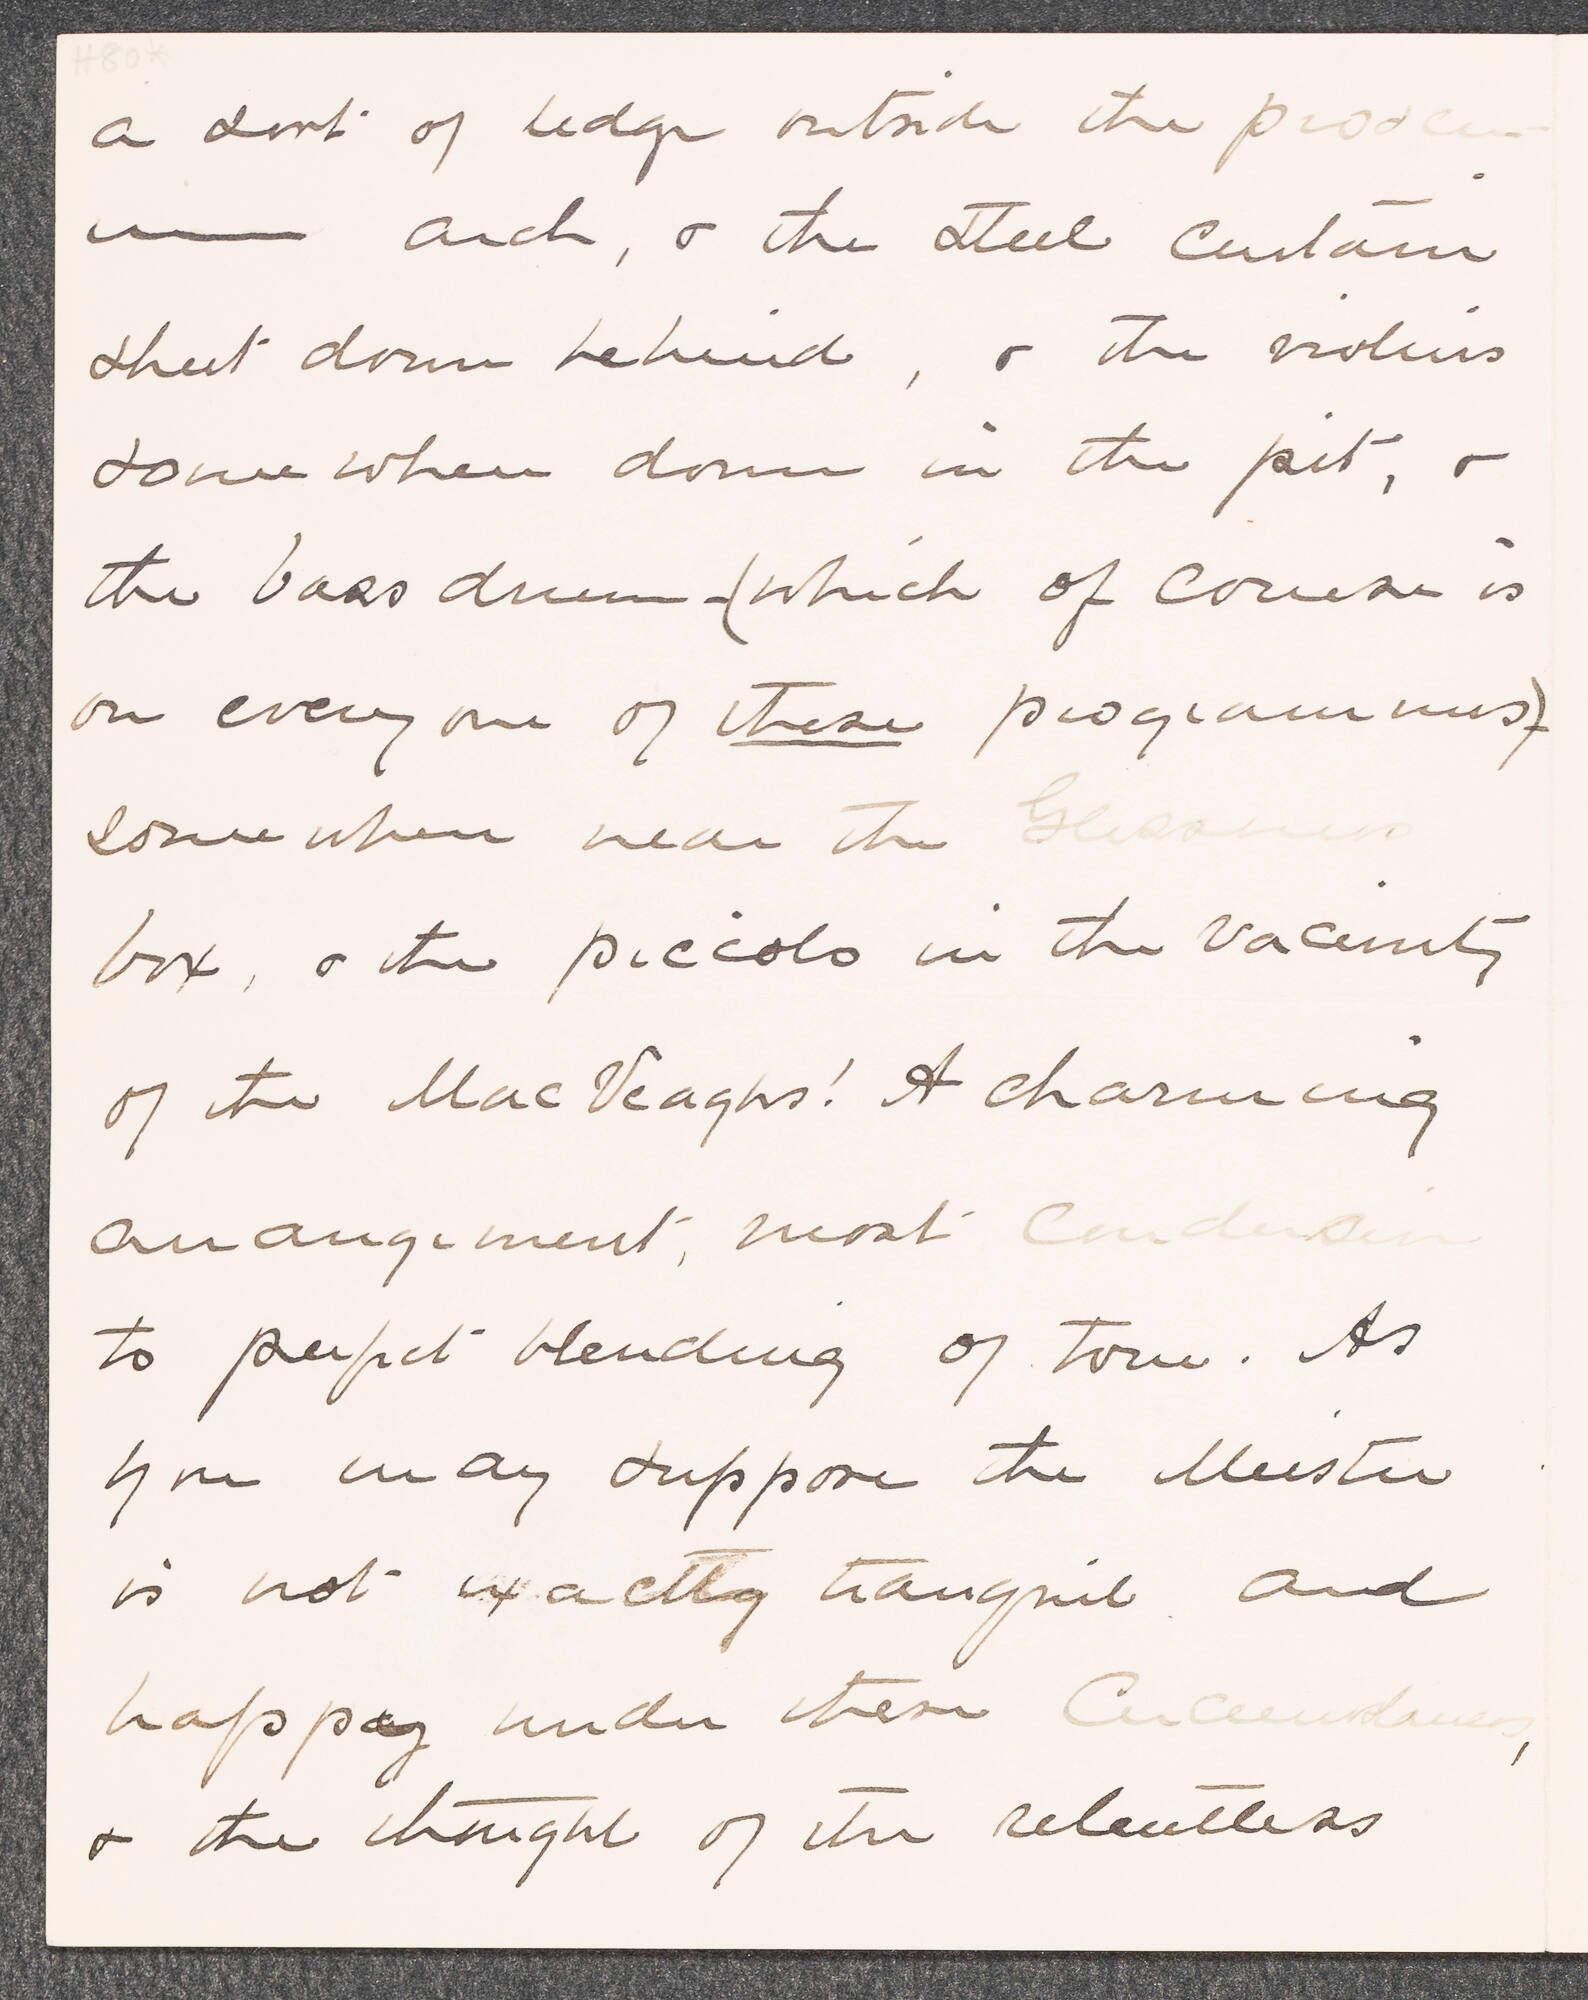 H80*
a sort of ledge outside the proscen-
ium arch, & the steel curtain
shut down behind, & the violins
somewhere down in the pit, &
the bass drum - (which of course is
on every one of these programmes) -
somewhere near the Glessners
box, & the piccolo in the vacinity
of the MacVeaghs! A charming
arrangement, most conducive
to perfect blending of tone. As
you may suppose the Meister
is not exactly tranquil and
happy under these circumstances,
& the thought of the relentless